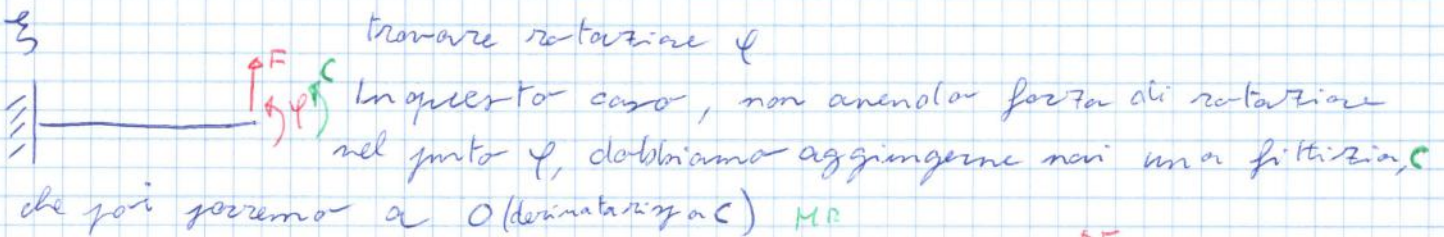 trovare rotazione φ
F C
φ In questo caso, non avendo forza di rotazione
nel punto φ, dobbiamo aggiungerne noi una fittizia, C
che poi porremo a 0 (derivata risp a C)